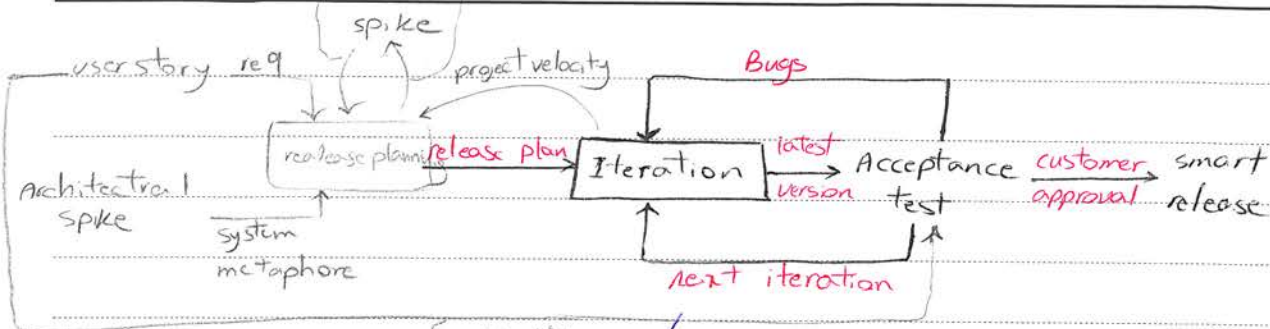 spike
user story req
project velocity
Bugs
realease planning
release plan
Iteration
latest
version
Acceptance
test
customer
approval
smart
release
Architectral
spike
system
metaphore
next iteration